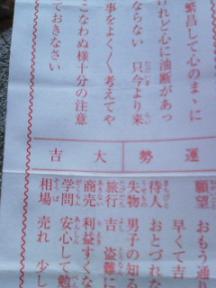 繁昌して心のまゝに
けれど心に油断があっ
ならない 只今より来
事をよく〳〵考えてや
こなわぬ様十分の注意
ておきなさい
運勢 大吉
願望 おもう通り
早くて吉
待人 おとづれな
失物 男子の知る
旅行 吉 盗難に
商売 利益すくな
学問 安心して勉
相場 売れ 少し